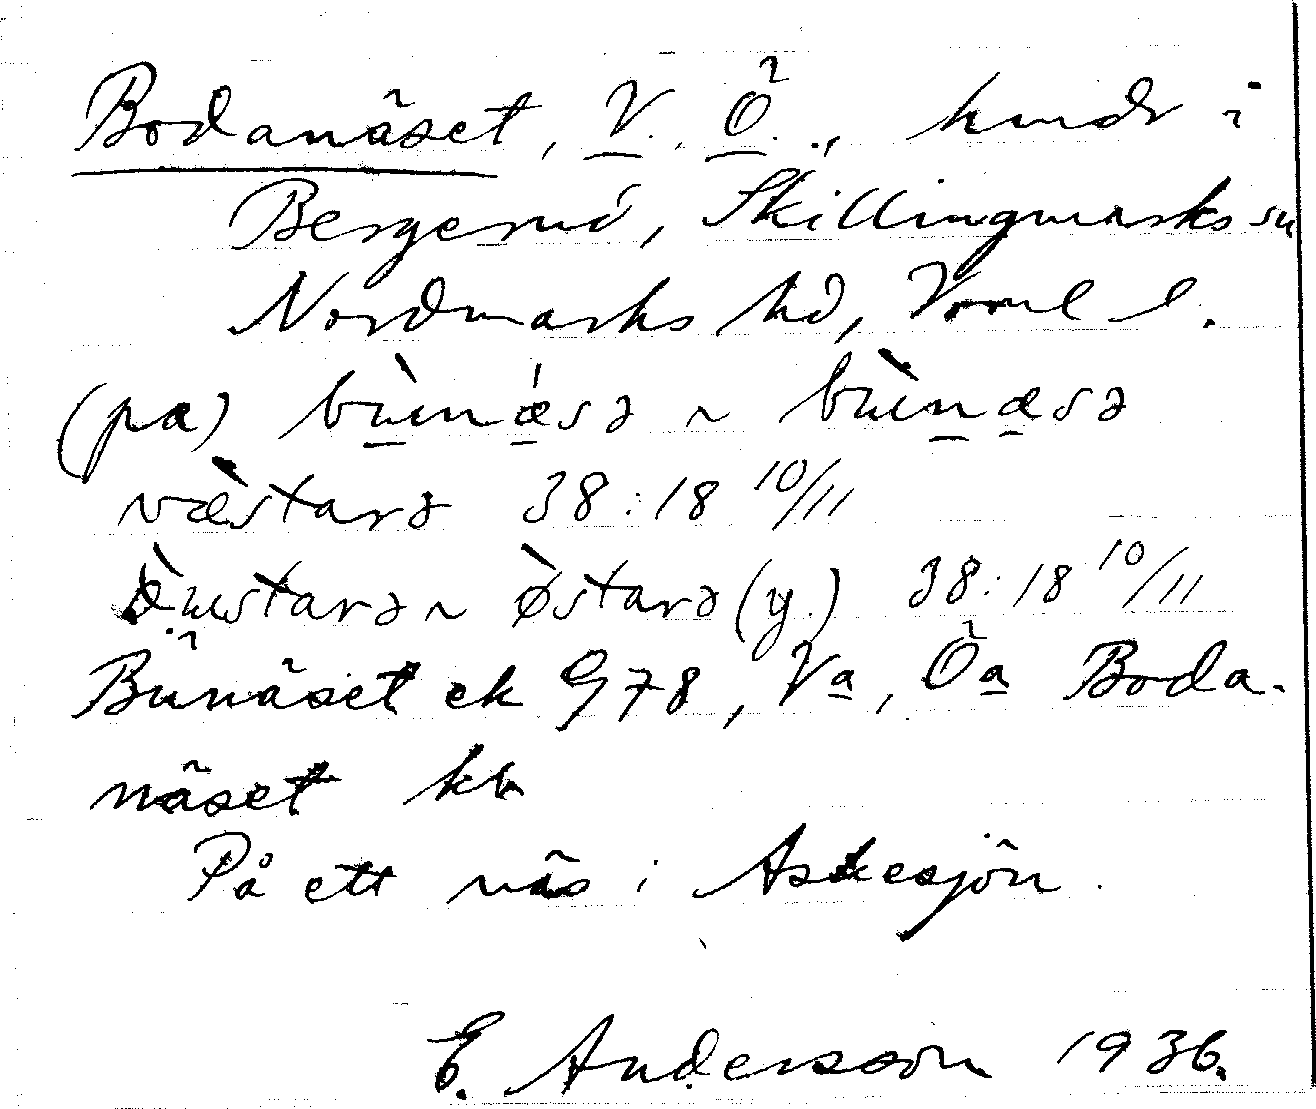 Bodanäset, V. Ö., hmdr i
Bergerud, Skillingmarks sn
Nordmarks hd, Vrml l.
(pa) bùnǽsə ~ bùnæsə
væ̀starə 38:18 10/11
østarə (y.) 38:18 10/11
Bunäset ek G78, Va, Öa Boda-
näset kb
På ett näs i Askesjön.
E. Andersson 1936.